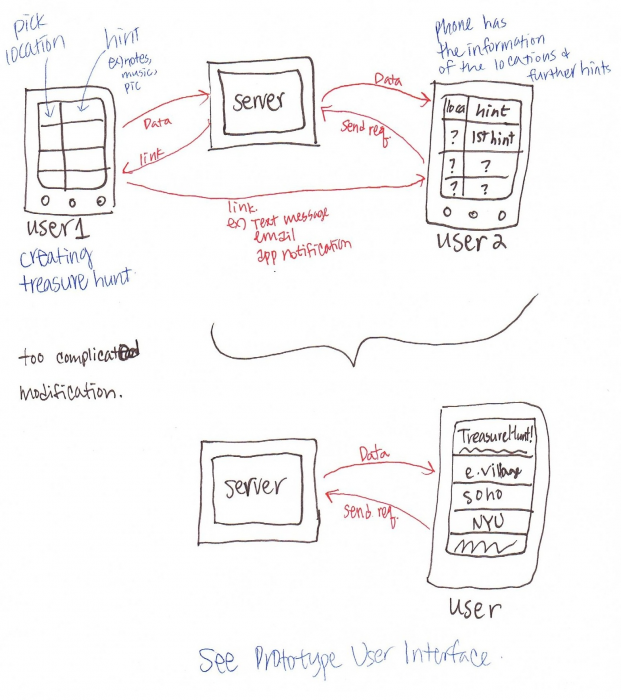 pick
location
hint
ex)notes,
music,
pic
server
Data
link
user1
creating
treasure hunt
Data
Send req.
link.
ex) Text message
email
app notification
phone has
the information
of the locations &
further hints
loca hint
? 1st hint
? ?
? ?
user 2
too complicated
modification.
server
Data
send req.
TreasureHunt!
e.village
soho
NYU
user
See Prototype User Interface.